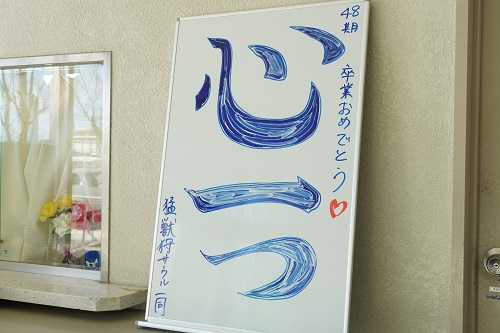 48期 卒業おめでとう♡
心一つ
猛獣狩サークル一同